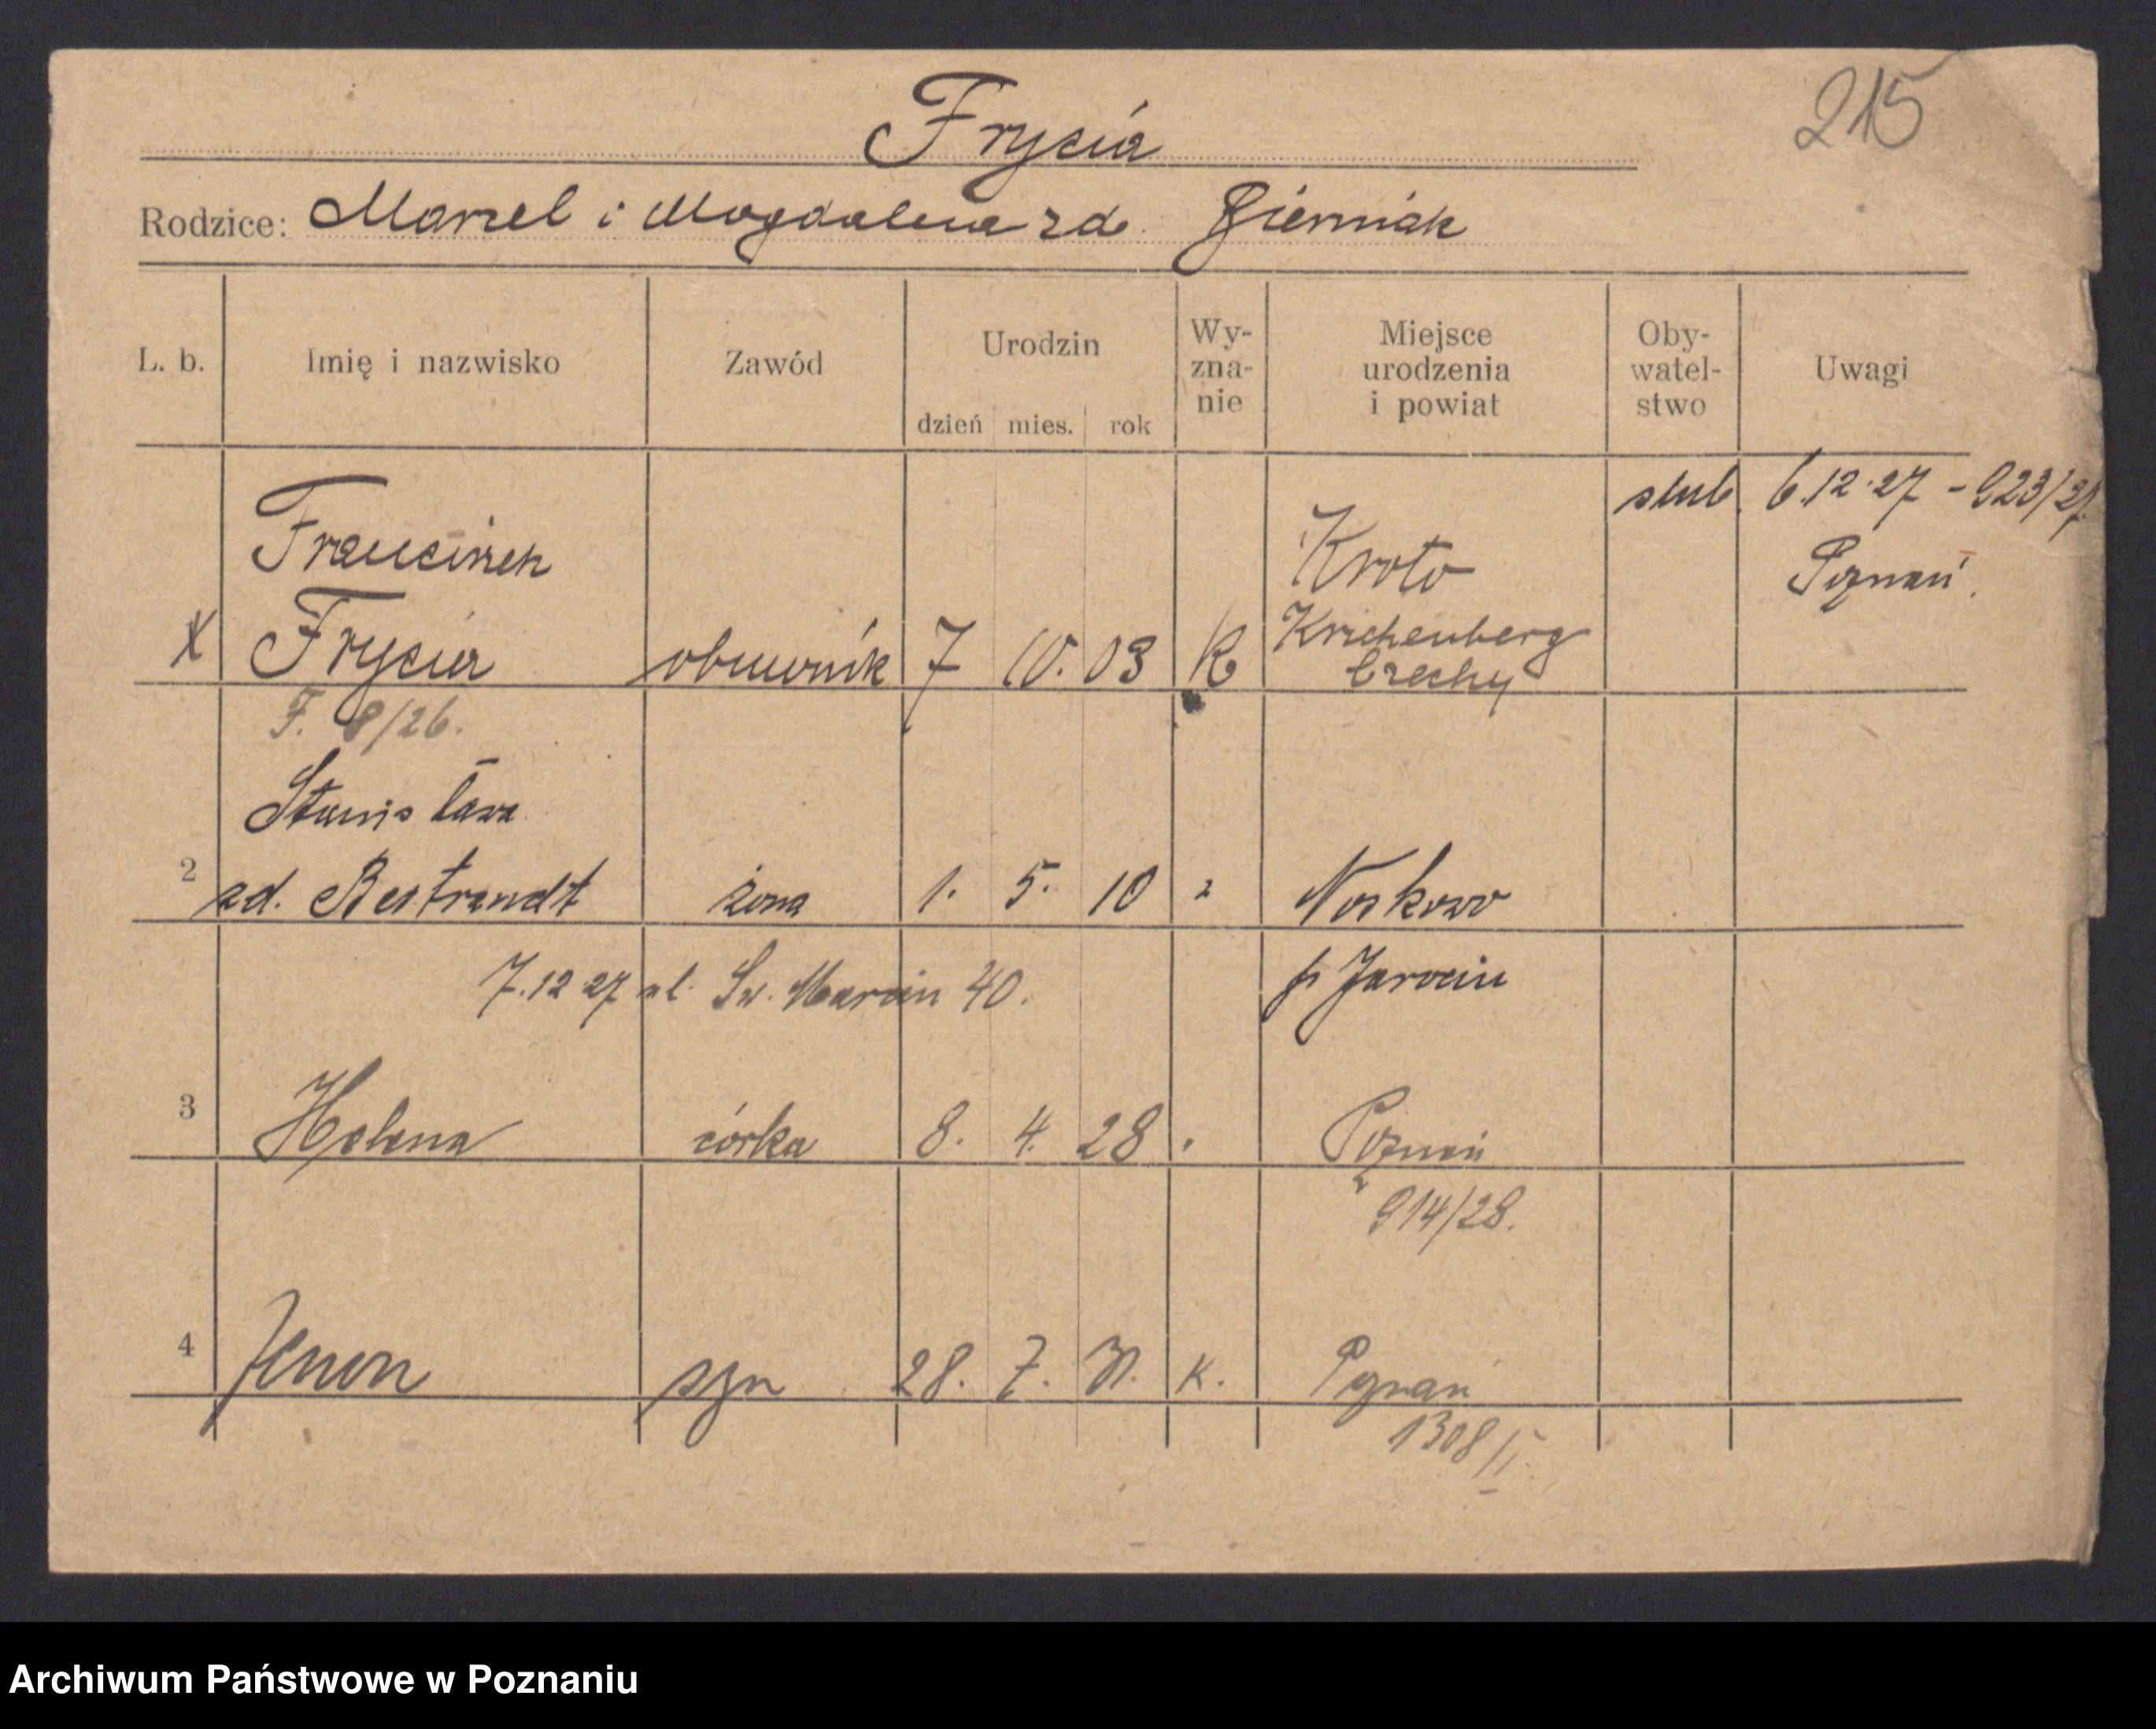 215
Frysia
Rodzice: Marcel i Magdalena zd. Bierniak
L. b. Imię i nazwisko Zawód Urodzin dzień mies. rok Wy-zna-nie Miejsce urodzenia i powiat Oby-watel-stwo Uwagi
ślub 6.12.27 - 923/27
Poznań.
Franciszek Kroto
X Frysia obuwnik 7 10. 03 K Krichenberg
Czechy
F. 8/26.
Stanisława
2 zd. Bertrandt żona 1. 5. 10 " Noskowo
p Jarocin
7.12 27 ul. Św. Marcin 40.
3 Helena córka 8. 4. 28 " Poznań
914/28.
4 Zenon syn 28. 7. K. Poznań
1308/I
Archiwum Państwowe w Poznaniu